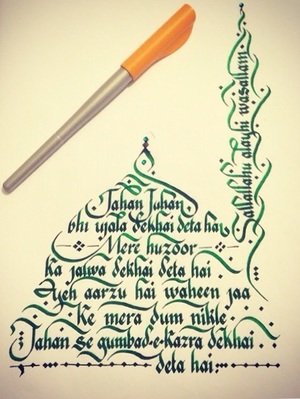 Jahan Jahan
bhi ujala dekhai deta hai
Mere huzoor
ka jalwa dekhai deta hai
Ayeh aarzu hai waheen jaa
ke mera dum nikle
Jahan se gumbad-e-kazra dekhai
deta hai.
Sallallahu alayhi wasallam.